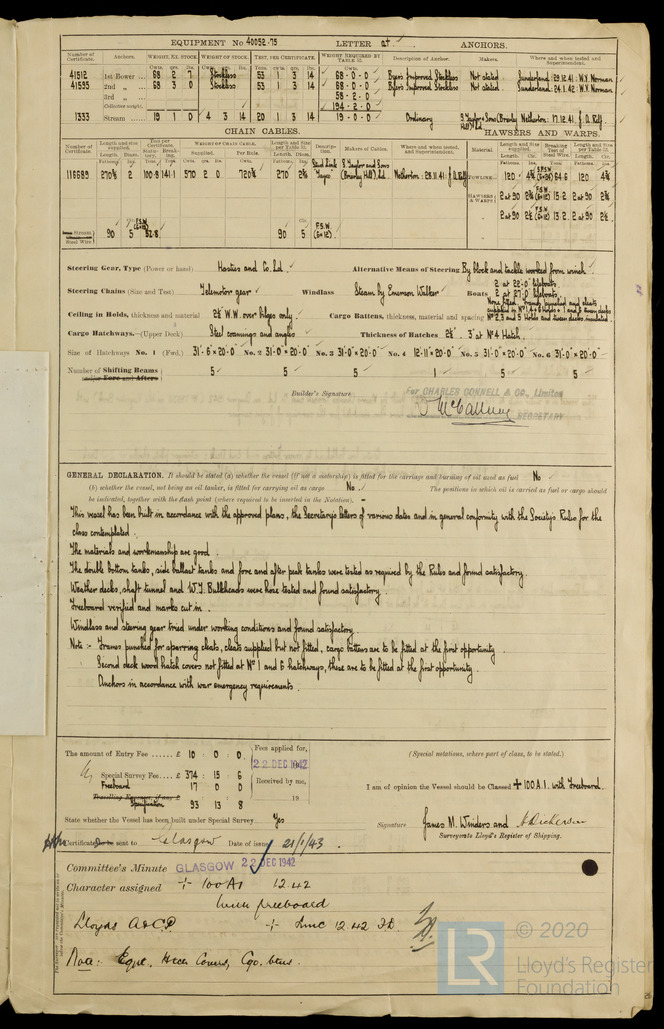 EQUIPMENT No 40052.75 LETTER at ANCHORS.
Number of Certificate. Anchors. WEIGHT, EX. STOCK WEIGHT OF STOCK. TEST, PER CERTIFICATE. WEIGHT REQUIRED BY TABLE 53. Description of Anchor. Makers. Where and when tested and Superintendent.
41512 1st Bower 68 2 7 Stockless 53 1 3 14 68-0-0 Byers Improved Stockless Not stated Sunderland 29.12.41 W.Y. Norman
41595 2nd " 68 3 0 Stockless 53 1 3 14 68-0-0 Byers Improved Stockless Not stated Sunderland 24.1.42 W.Y. Norman
3rd " 58-2-0
Collective weight 194-2-0
1333 Stream 19 1 0 4 3 14 20 1 3 14 19-0-0 Ordinary S. Taylor & Sons (Brierley Hill) Ltd Netherton 17.12.41
CHAIN CABLES. HAWSERS AND WARPS.
116689 270⅝ 2 100.8 141.1 570 2 0 720¾ 270 Stud Link S. Taylor and Sons (Brierley Hill) Ltd. Netherton 28.11.41 TOWLINE 120 64.6 120
HAWSERS & WARPS 2 at 90 15.2 2 at 90
2 at 90 13.2 2 at 90
Steel Wire 90 5 F.S.W. (6×12) 52.8 90 5 F.S.W. (6×12)
Steering Gear, Type (Power or hand) Hasties and Co. Ltd Alternative Means of Steering By block and tackle worked from winch
Steering Chains (Size and Test) Telemotor gear Windlass Steam by Emerson Walker Boats 2 at 22'-0" lifeboats
2 at 27'-0" lifeboats
Ceiling in Holds, thickness and material 2½" W.W. over bilges only Cargo Battens, thickness, material and spacing
Cargo Hatchways.—(Upper Deck) Steel coamings and angles Thickness of Hatches 2½" 3" at No 4 Hatch.
Size of Hatchways No. 1 (Fwd.) 31'-6"×20'-0" No. 2 31'-0"×20'-0" No. 3 31'-0"×20'-0" No. 4 12'-11"×20'-0" No. 5 31'-0"×20'-0" No. 6 31'-0"×20'-0"
Number of Shifting Beams and/or Fore and Afters 5 5 5 1 5 5
Builder's Signature For CHARLES CONNELL & Co., Limited
SECRETARY
GENERAL DECLARATION. It should be stated (a) whether the vessel (if not a motorship) is fitted for the carriage and burning of oil used as fuel No
(b) whether the vessel, not being an oil tanker, is fitted for carrying oil as cargo No. The positions in which oil is carried as fuel or cargo should
be indicated, together with the flash point (where required to be inserted in the Notation). -
This vessel has been built in accordance with the approved plans, the Secretary's letters of various dates and in general conformity with the Society's Rules for the
class contemplated.
The materials and workmanship are good.
The double bottom tanks, side ballast tanks and fore and after peak tanks were tested as required by the Rules and found satisfactory.
Weather decks, shaft tunnel and W.T. Bulkheads were hose tested and found satisfactory.
Freeboard verified and marks cut in.
Windlass and steering gear tried under working conditions and found satisfactory.
Note :- Frames punched for sparring cleats, cleats supplied but not fitted, cargo battens are to be fitted at the first opportunity.
Second deck wood hatch covers not fitted at No 1 and 6 hatchways, these are to be fitted at the first opportunity.
Anchors in accordance with war emergency requirements.
The amount of Entry Fee ...... £ 10 : 0 : 0 Fees applied for, 22 DEC 1942 (Special notations, where part of class, to be stated.)
Special Survey Fee... £ 374 : 15 : 6 Received by me,
Freeboard 17 0 0 19
Specification 93 13 8
I am of opinion the Vessel should be Classed + 100 A.1. with Freeboard.
State whether the Vessel has been built under Special Survey Yes Signature James M. Winders and
Surveyors to Lloyd's Register of Shipping.
Certificate to be sent to Glasgow Date of issue 21/1/43.
Committee's Minute GLASGOW 22 DEC 1942
Character assigned + 100A1 12.42
with freeboard
Lloyds A&CP. + LMC 12.42
Note: Eqpt. Hatch Covers, Cgo. battens.
© 2020
LR
Lloyd's Register
Foundation